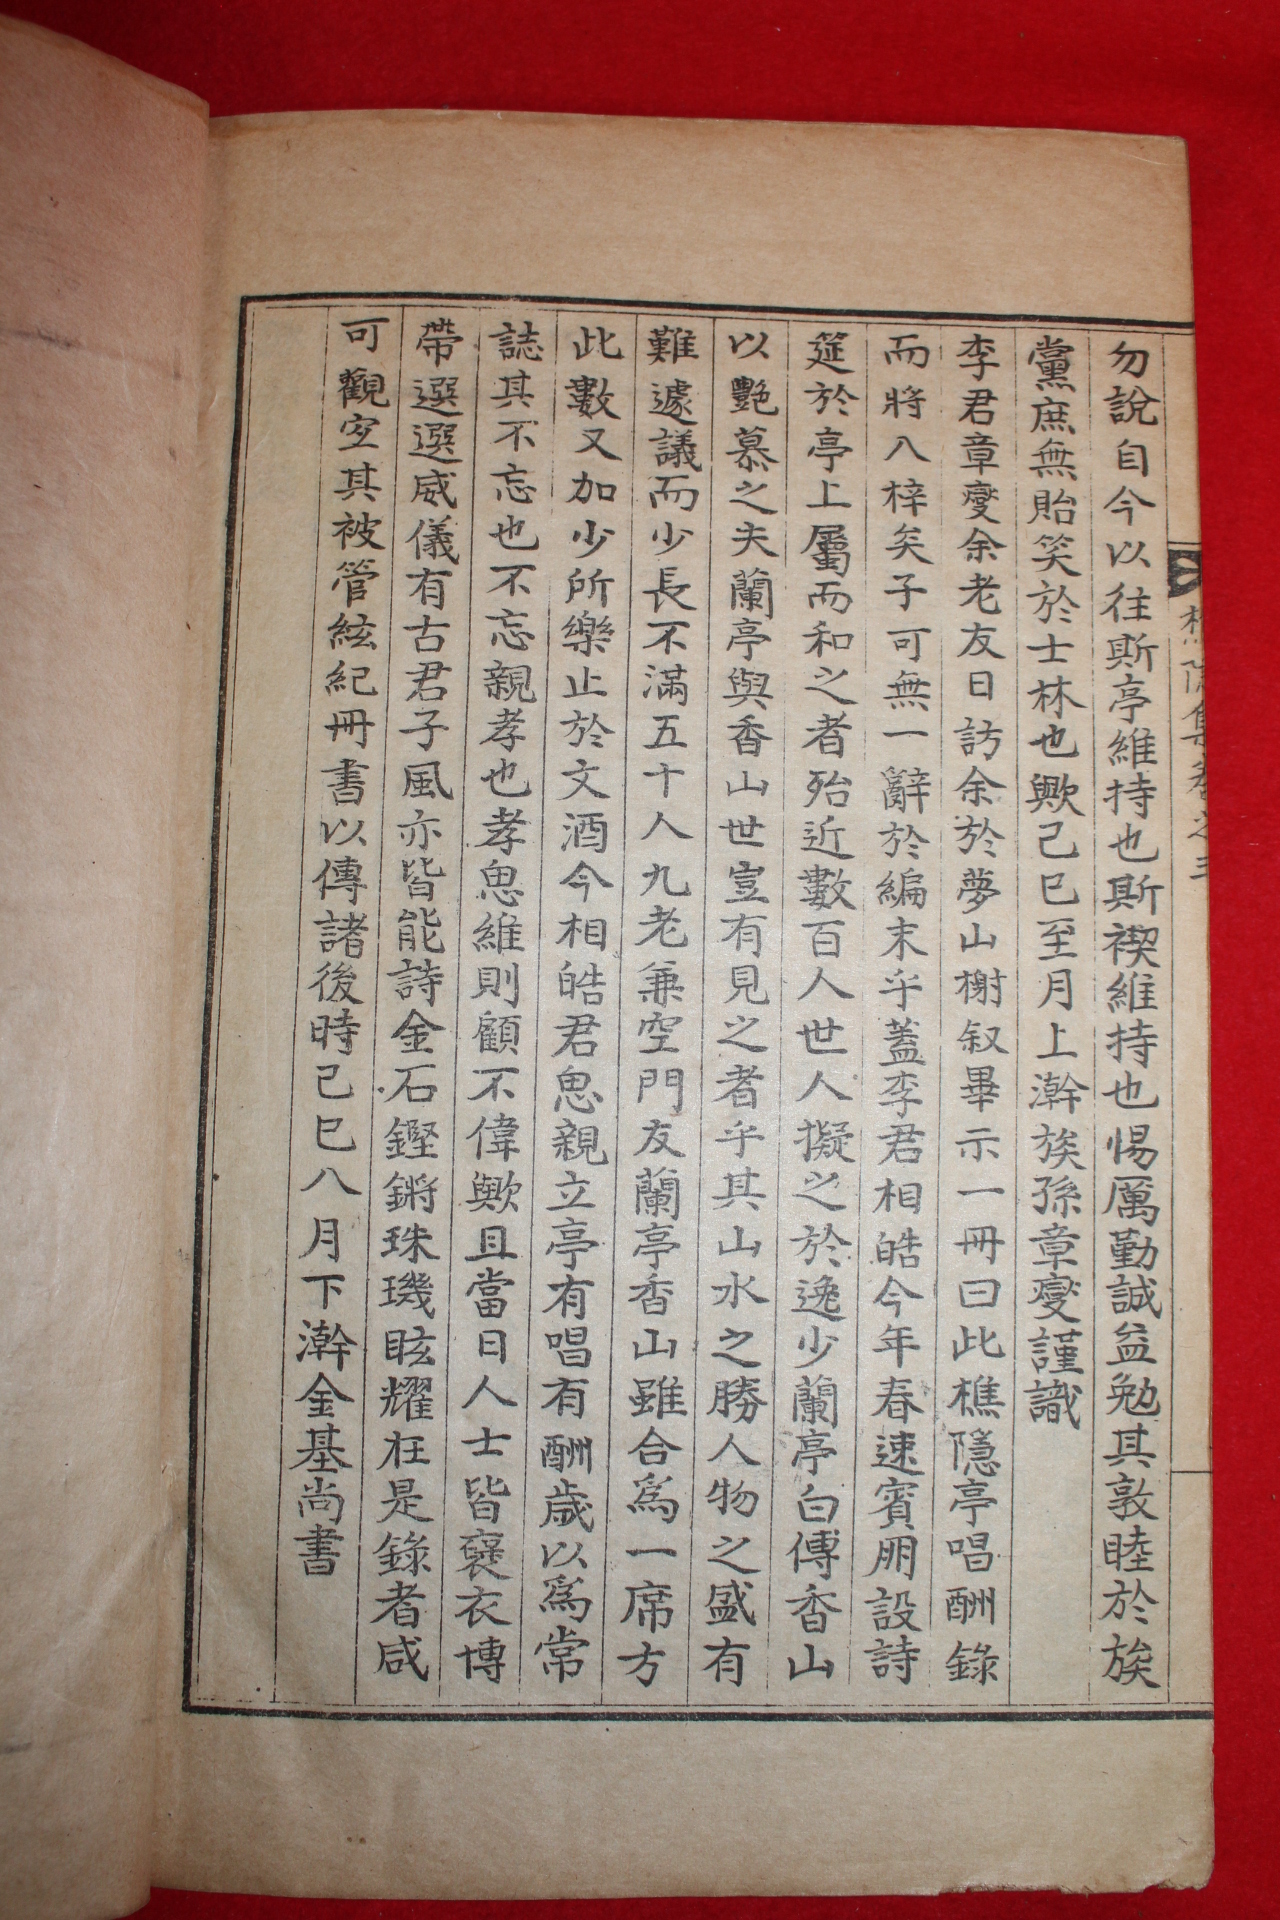 勿說自今以往斯亭維持也斯禊維持也惕厲勤誠益勉其敦睦於族
黨庶無貽笑於士林也歟己巳至月上澣族孫章燮謹識
李君章燮余老友日訪余於夢山榭叙畢示一冊曰此樵隱亭唱酬錄
而將入梓矣子可無一辭於編末乎蓋李君相皓今年春速賓朋設詩
筵於亭上屬而和之者殆近數百人世人擬之於逸少蘭亭白傅香山
以艶慕之夫蘭亭與香山世豈有見之者乎其山水之勝人物之盛有
難遽議而少長不滿五十人九老兼空門友蘭亭香山雖合爲一席方
此數又加少所樂止於文酒今相皓君思親立亭有唱有酬歲以爲常
誌其不忘也不忘親孝也孝思維則顧不偉歟且當日人士皆褒衣博
帶選選威儀有古君子風亦皆能詩金石鏗鏘珠璣眩耀在是錄者咸
可觀宜其被管絃紀冊書以傳諸後時己巳八月下澣金基尚書
樵隱集卷之三